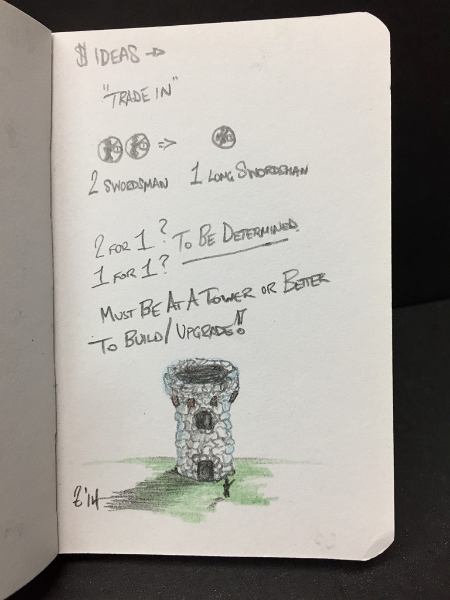 $ IDEAS →
"TRADE IN"
=>
2 SWORDSMAN 1 LONG SWORDSMAN
2 FOR 1? TO BE DETERMINED.
1 FOR 1?
MUST BE AT A TOWER OR BETTER
TO BUILD/UPGRADE!!
Z'14